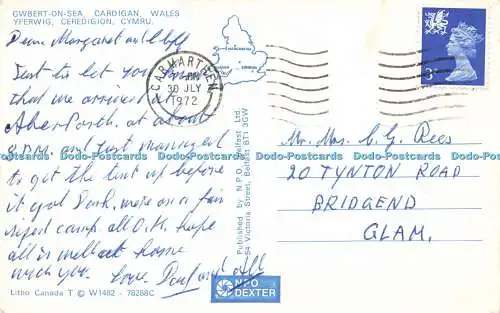 GWBERT-ON-SEA, CARDIGAN, WALES
YFERWIG, CEREDIGION, CYMRU.
Dear Margaret and
Just to let you know
that we arrived
Aberporth at about
8 P.M. and just managed
to get the tent up before
it got Dark, were on a fair
sized camp. all O.K. hope
all is well at home
with you. Love. and All
Litho Canada T © W1482 - 78288C
CARMARTHEN
30 JLY
1972
Published by N.P.O. Belfast Ltd.
54 Victoria Street, Belfast BT1 3GW
NPO
DEXTER
3P
Mr. Mrs. C. G. Rees
20 TYNTON ROAD
BRIDGEND
GLAM.
Dodo-Postcards Dodo-Postcards Dodo-Postcards Dodo-Postcards Dodo-Postcards